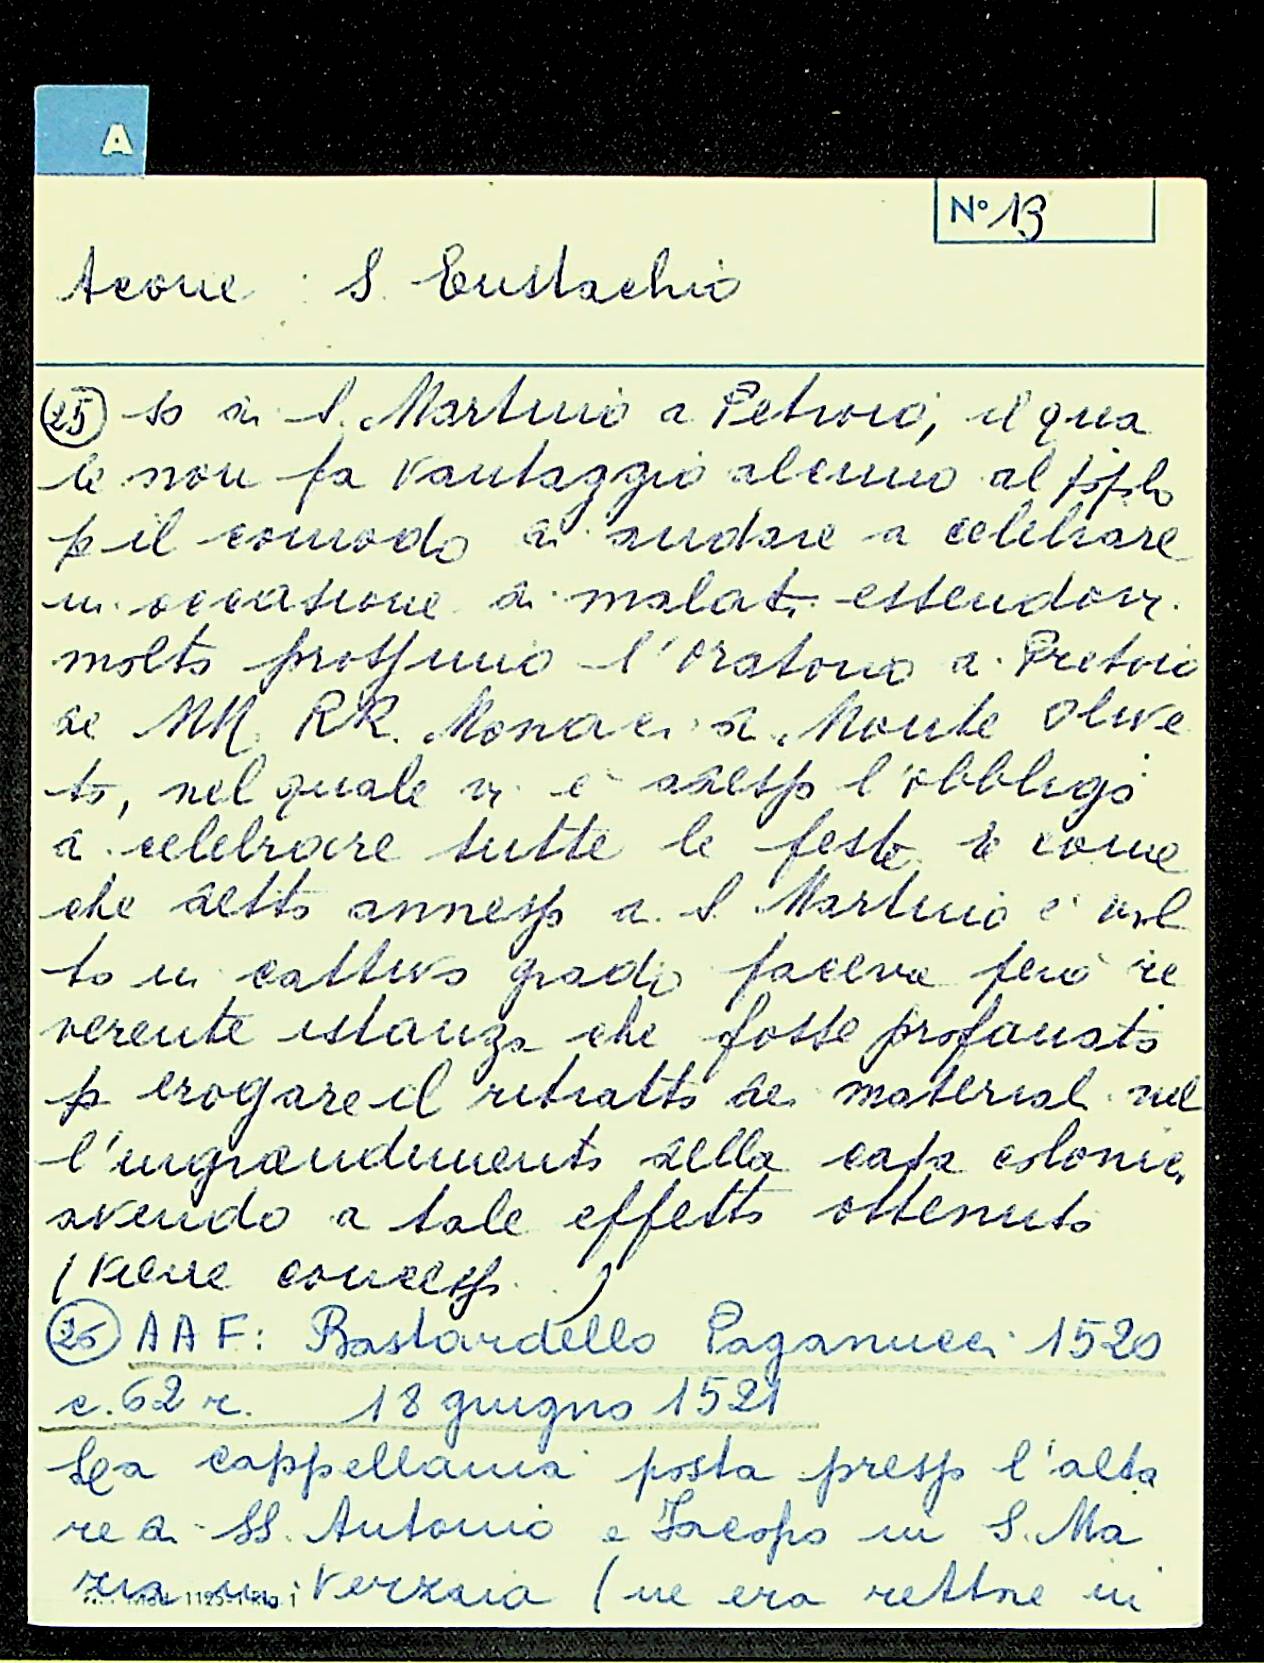 A
N° 13
Acone : S. Eustachio
(25) so di S. Martino a Petroio, il qua
le non fa vantaggio alcuno al popolo
p il comodo di andare a celebrare
in occasione di malati essendovi
molto prossimo l'oratorio a Pretoio
de MM. RR. Monaci di Monte Olive
to, nel quale vi è adesso l'obbligo
di celebrare tutte le feste e come
che detto annesso a S. Martino è
to in cattivo grado faceva però re
verente istanza che fosse profanato
p erogare il ritratto dei materiali nel
l'ingrandimento della casa colonica
avendo a tale effetto ottenuto
(viene concesso .)
(26) AAF: Bastardello Paganucci 1520
c. 62 r. 18 giugno 1521
La cappellania posta presso l'alta
re di SS. Antonio e Iacopo in S. Ma
ria in Verzaia (ne era rettore in